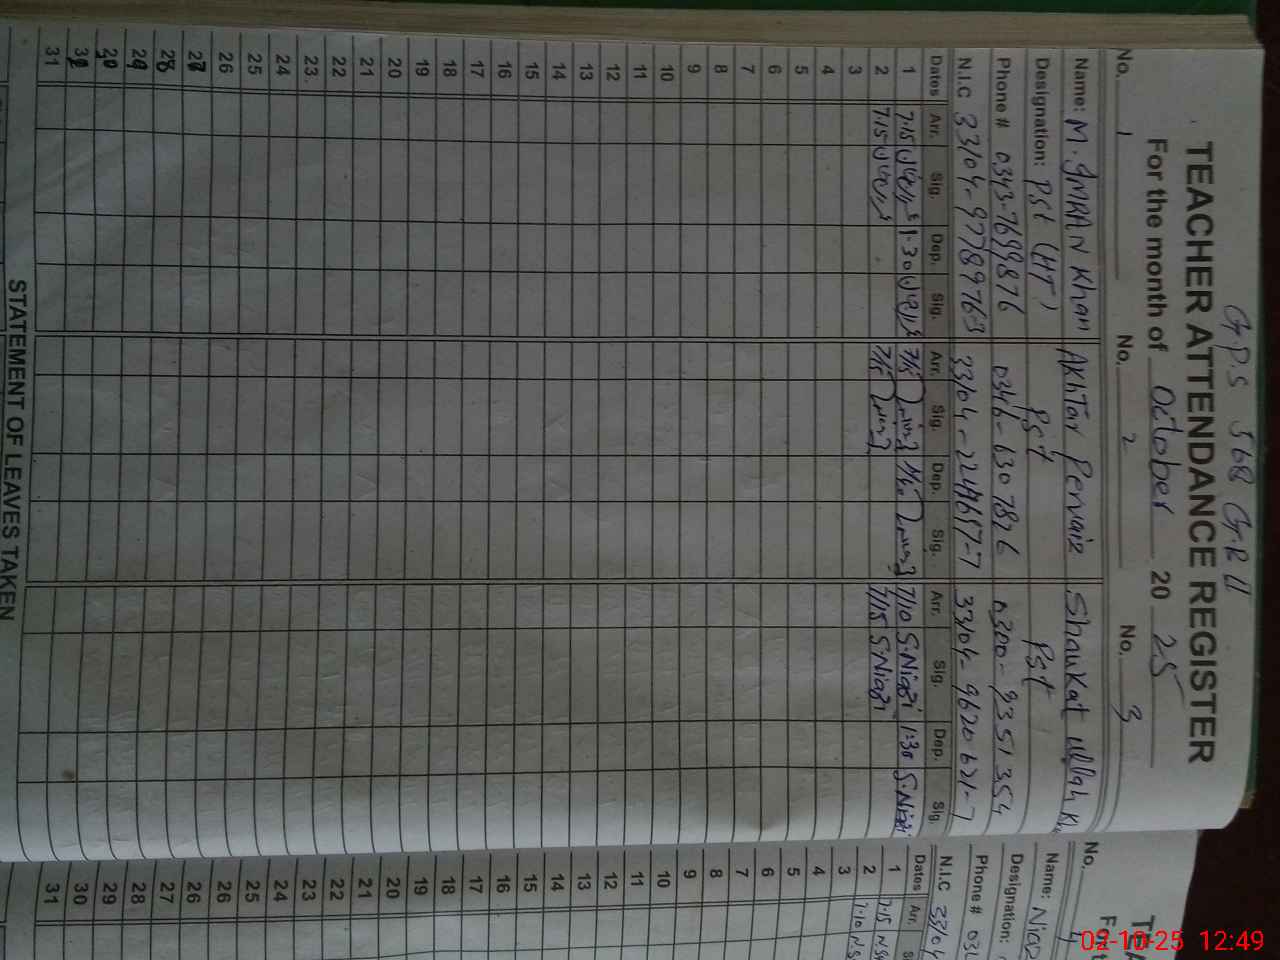 G.P.S 568 G.B II
TEACHER ATTENDANCE REGISTER
For the month of October 20 25
No. 1 No. 2 No. 3
Name: M. IMRAN Khan Akhtar Pervaiz Shaukat ullah
Designation: Pst (HT) Pst Pst
Phone # 0343-7699876 0346-6307826 0300-9351354
N.I.C 33104-9778976 33104- 33104-9620621-7
Dates Arr. Sig. Dep. Sig. Arr. Sig. Dep. Sig. Arr. Sig. Dep. Sig.
1 7.15 1.30 7/15 7/10 S.Niazi 1:30 S.Niazi
2 7.15 7/15 7/15 S.Niazi
3
4
5
6
7
8
9
10
11
12
13
14
15
16
17
18
19
20
21
22
23.
24
25
26
27
28
29
30
31
STATEMENT OF LEAVES TAKEN
No. 4
Name:
Designation:
Phone #
N.I.C 33104
Dates Arr.
1 7.15
2 7.10
3
4
5
6
7
8
9
10
11
12
13
14
15
16
17
18
19
20
21
22
23
24
25
26
26
27
28
29
30
31
02-10-25 12:49